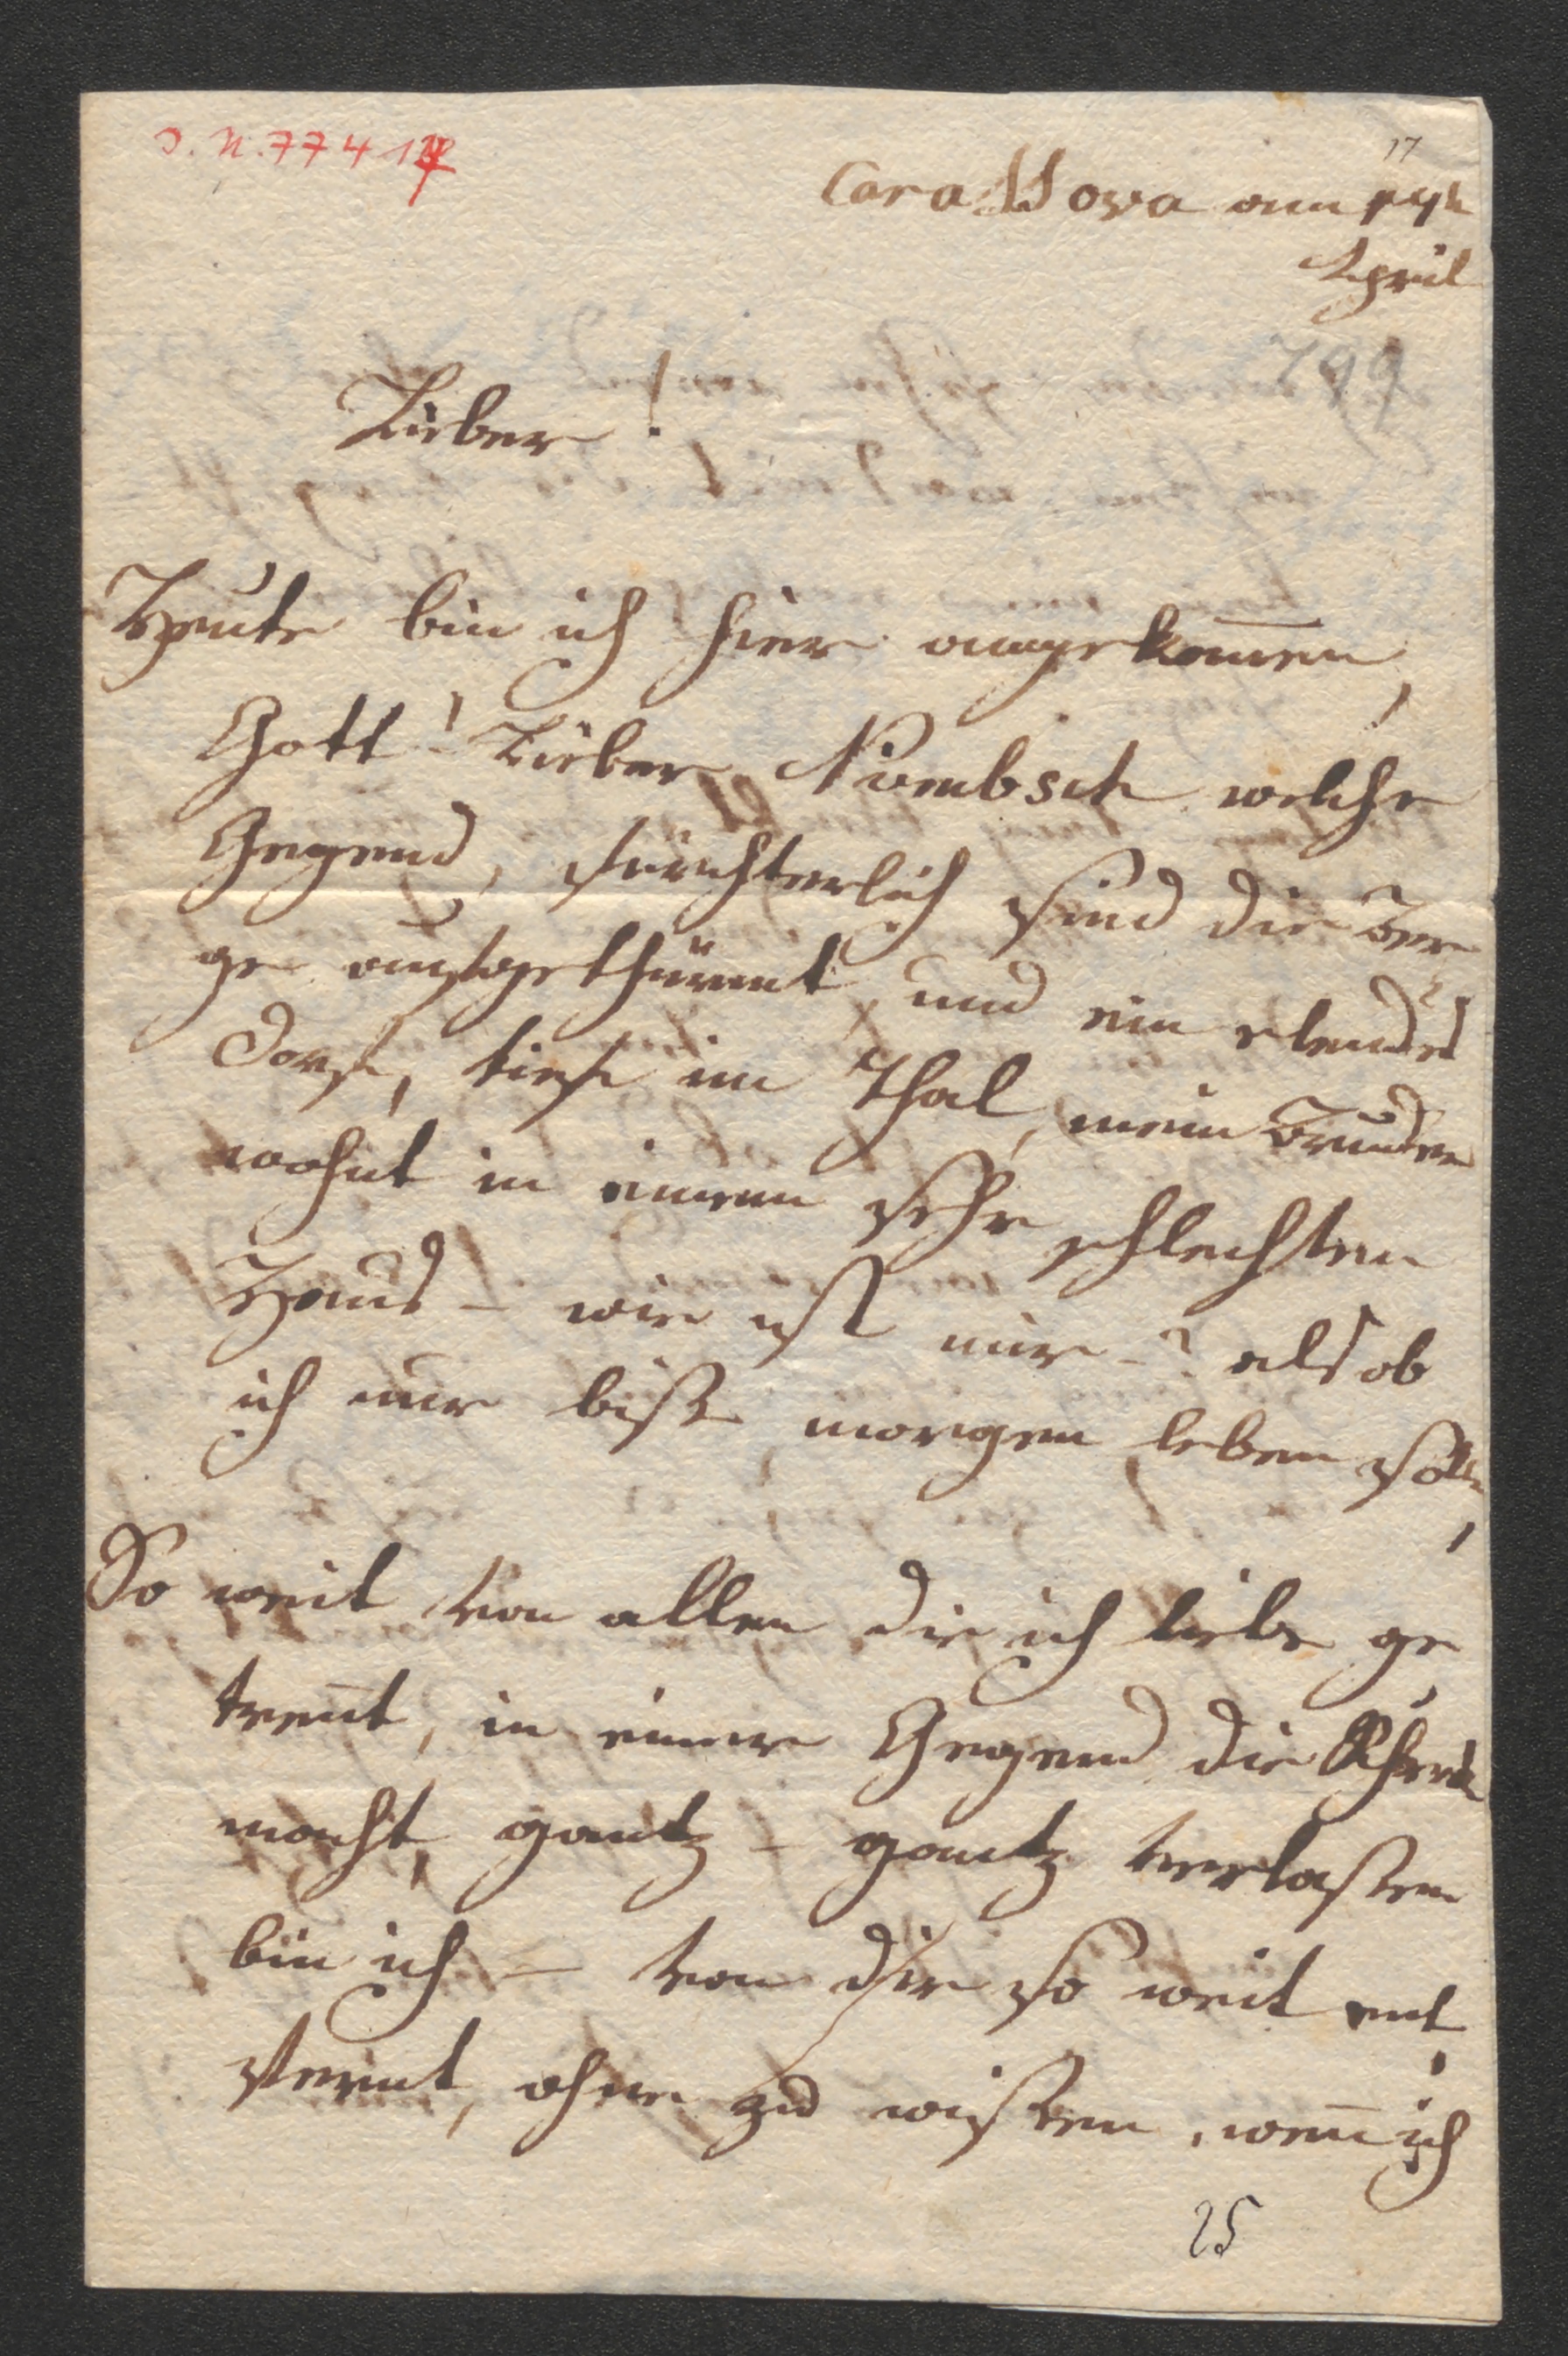 J. N. 77412
17
Carassova am
April
799
Lieber!
Heute bin ich hier angekom̅en,
Gott! Lieber Niembsch welche
Gegend, fürchterlich sind die Ber
ge aufgethürmt, und ein elendes
Dorf, tief im Thal, mein Bruder
wohnt in einem sehr schlechten
Haus – wie ist mir –? als ob
ich nur biß morgen leben sollte,
So weit von allen die ich liebe ge
tren̅t, in einer Gegend die Schrecken
macht, gantz – gantz verlaßen
bin ich – von dir so weit ent
fernt, ohne zu wißen, wen̅ ich
25